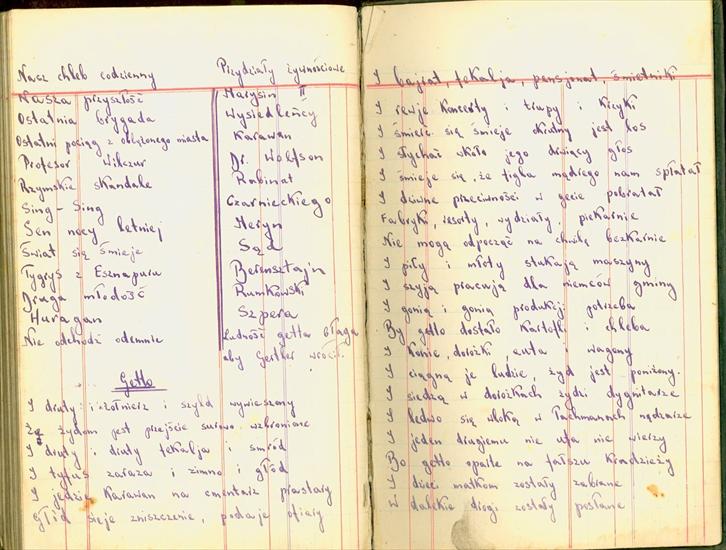 Nasz chleb codzienny Przydziały żywnościowe
Nasza przyszłość Marysin II
Ostatnia brygada Wysiedleńcy
Ostatni pociąg z oblężonego miasta Karawan
Profesor Wilczur Dr. Wolfson
Rzymskie skandale Rabinat
Sing-Sing Czarnieckiego
Sen nocy letniej Heryn
Świat się śmieje Sąd
Tygrys z Esznapuru Berensztajn
Druga młodość Rumkowski
Huragan Szpera
Nie odchodź odemnie Ludność getta błaga
aby Gertler wrócił.
Getto
I druty i żołnierz i szyld wywieszony
Że żydom jest przejście surowo wzbronione
I druty i druty fekalja i smród
I tyfus zaraza i zimno i głód
I jedzie karawan na cmentarz prastary
Głód sieje zniszczenie, podaje ofiary
I bajrat, fekalja, pensjonat, śmietniki
I rewje koncerty i trupy i krzyki
I śmierć się śmieje okrutny jest los
I słychać wkoło jego drwiący głos
I śmieje się, że figla mądrego nam spłatał
I dziwne przeciwności w gecie pobratał
Fabryki, resorty, wydziały, piekarnie
Nie mogą odpocząć na chwilę bezkarnie
I piły i młoty stukają maszyny
I szyją pracują dla niemców gminy
I gonią i gonią produkcji potrzeba
By getto dostało kartofli i chleba
I konie, dorożki, auta i wagony
I ciągną je ludzie, żyd jest poniżony.
I siedzą w dorożkach żydzi dygnitarze
I ledwo się wloką w łachmanach nędzarze
I jeden drugiemu nie ufa nie wierzy
Bo getto oparte na fałszu kradzieży
I dzieci matkom zostały zabrane
W dalekie drogi zostały posłane